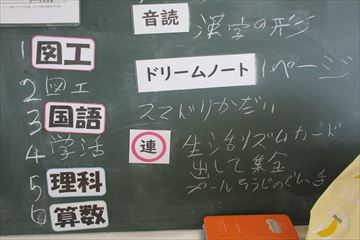 音読 漢字の形
1 図工
ドリームノート 1ページ
2 図工
スマドリかだい
3 国語
4 学活
連 生活リズムカード
出して集金
プールそうじのぐん手
5 理科
6 算数